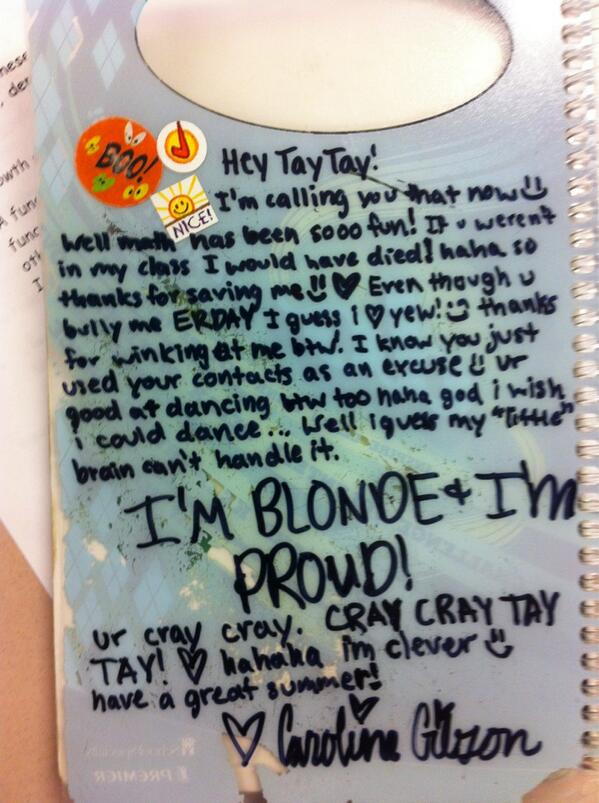 BOO!
NICE!
Hey Tay Tay!
I'm calling you that now
Well math has been sooo fun! If u weren't
in my class I would have died! haha so
thanks for saving me!! ♥ Even though u
bully me ERDAY I guess i ♥ yew! thanks
for winking at me btw. I know you just
used your contacts as an excuse ur
good at dancing btw too haha god i wish
i could dance... Well i guess my "little"
brain can't handle it.
I'M BLONDE & I'm
PROUD!
ur cray cray. CRAY CRAY TAY
TAY! ♥ hahaha i'm clever
have a great summer!
♥ Caroline Gibson
School Specialty
PREMIER